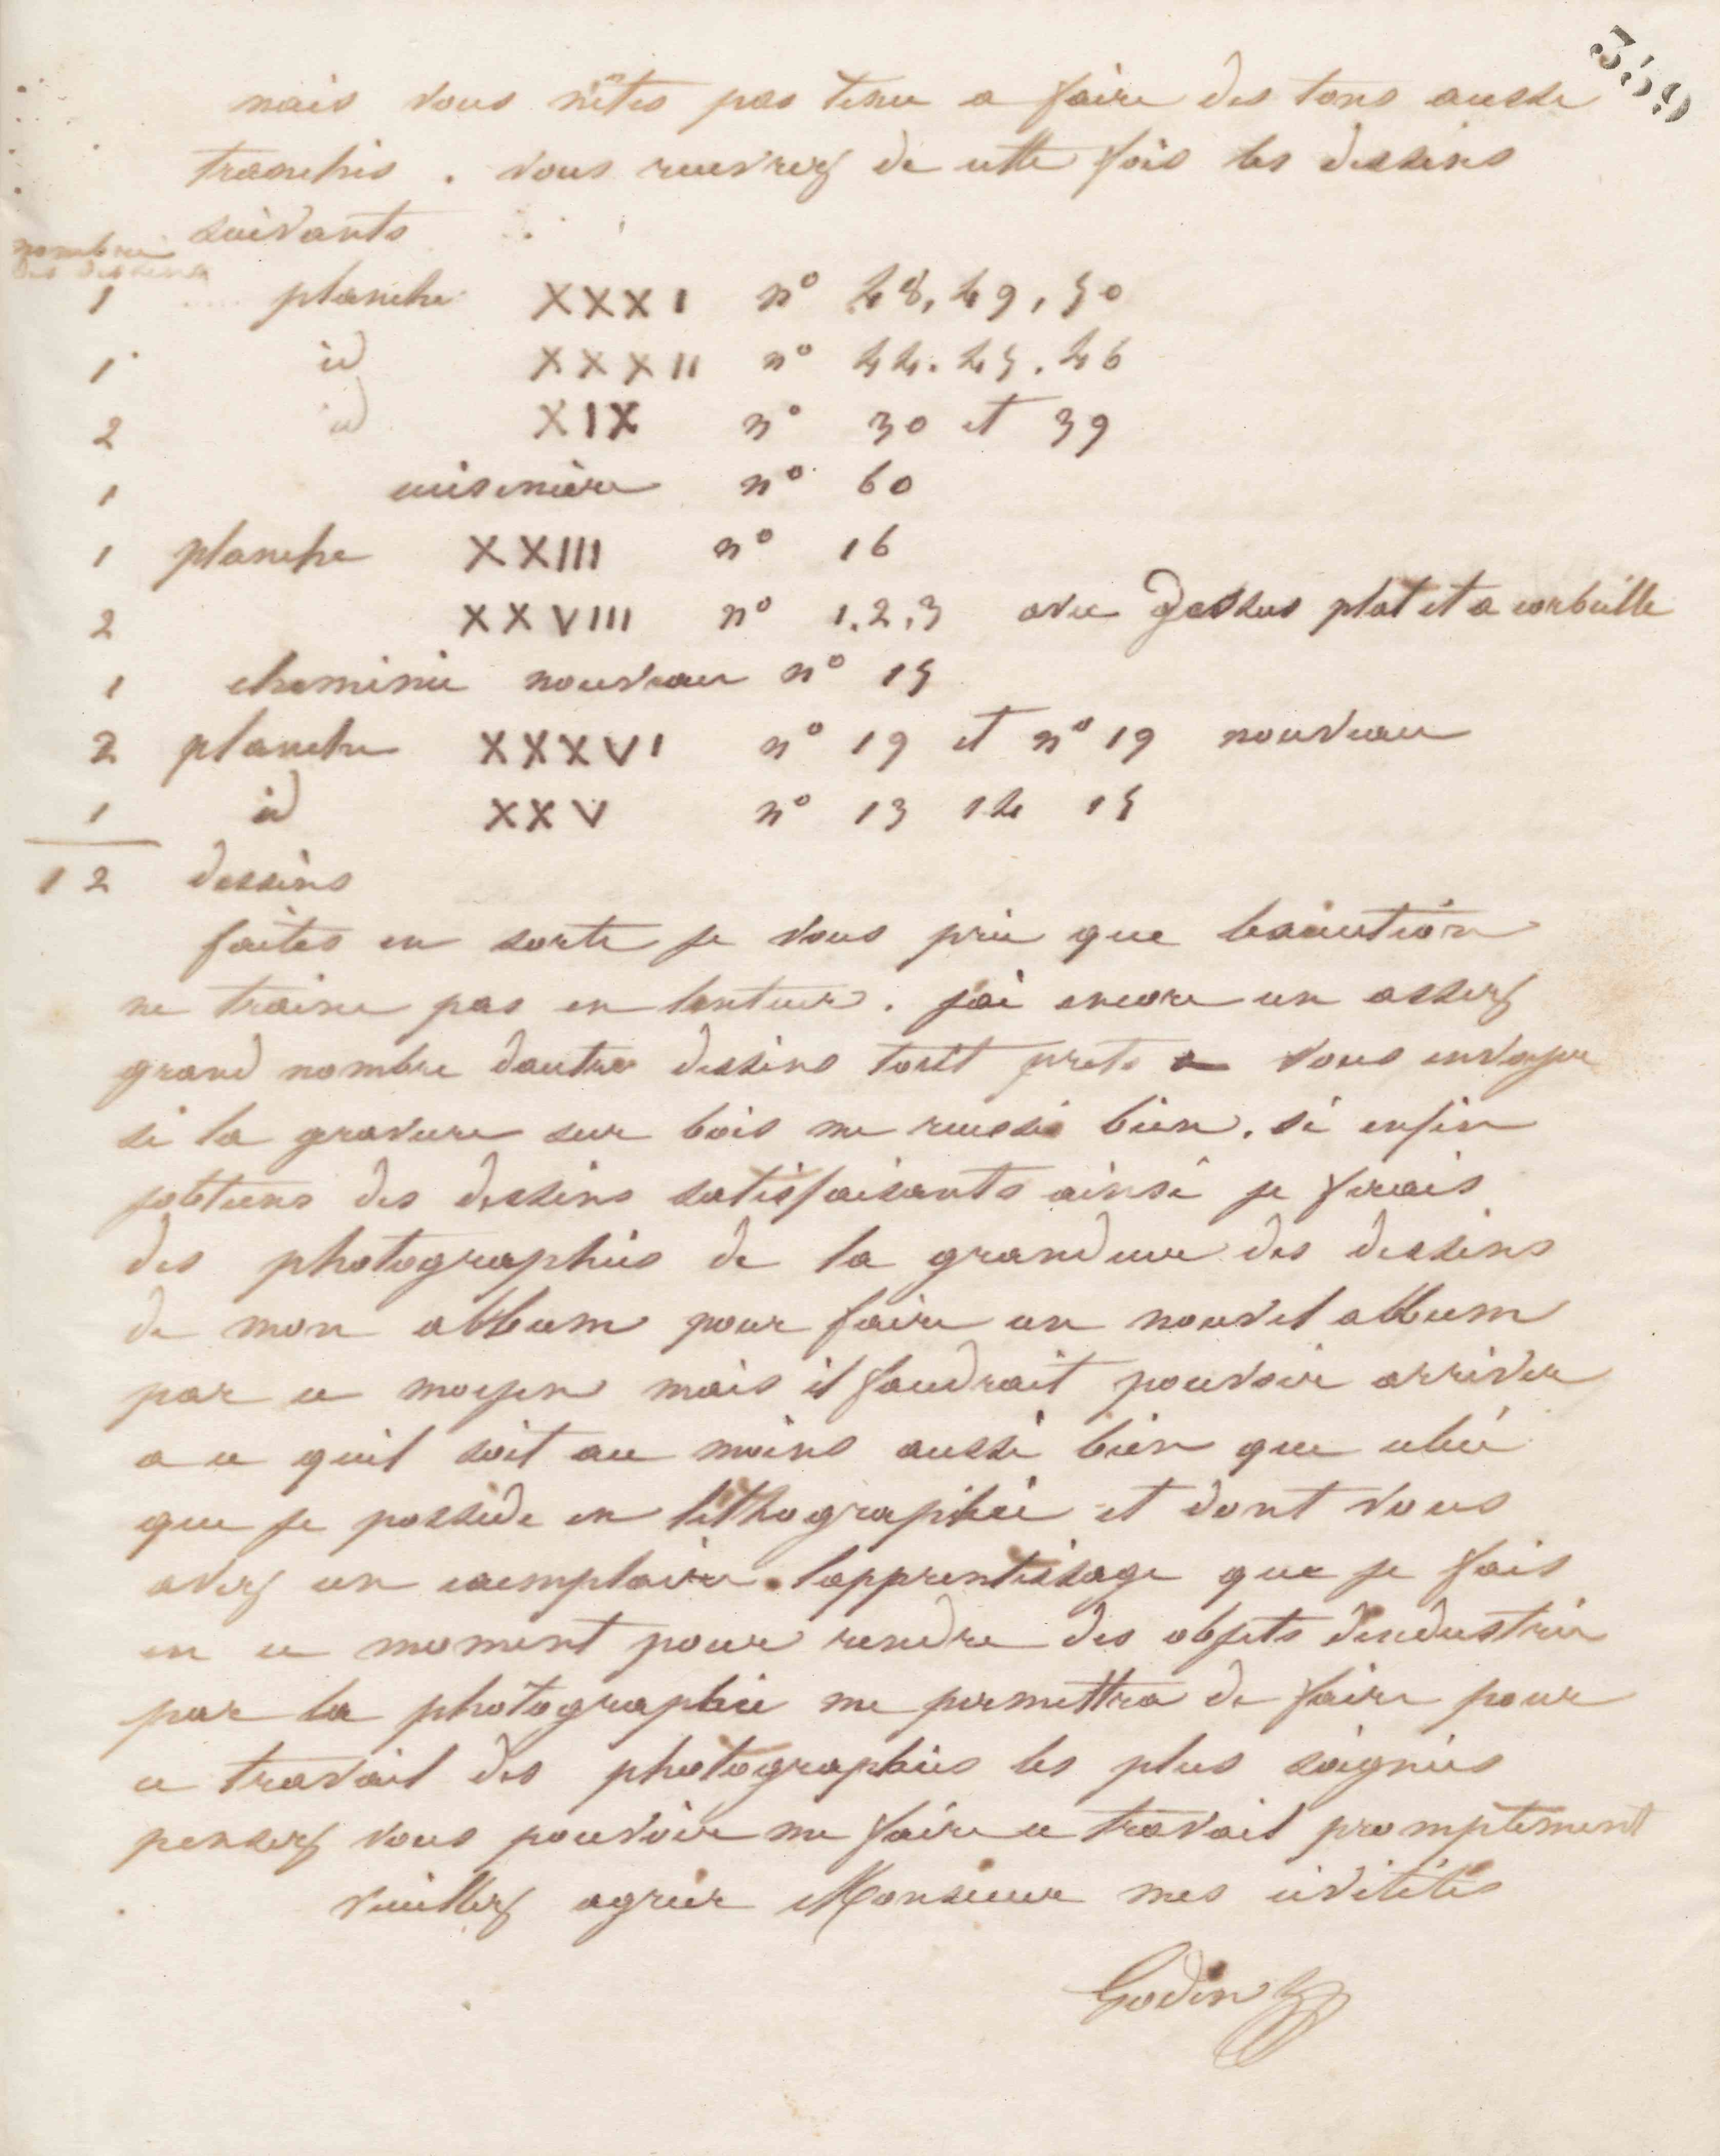 359
mais vous n'êtes pas tenu a faire des tons aussi
tranchés . vous recevrez de cette fois les dessins
suivants
nombre
des dessins
1 planche XXXI n° 48, 49, 50
1 id XXXII n° 44. 45. 46
2 id XIX n° 30 et 39
1 cuisinière n° 60
1 planche XXIII n° 16
2 XXVIII n° 1.2.3 avec dessus plat et a corbeille
1 cheminée nouveau n° 15
2 planche XXXVI n° 19 et n° 19 nouveau
1 id XXV n° 13 14 15
12 dessins
faites en sorte je vous prie que lexécution
ne traine pas en lenteur. jai encore un assez
grand nombre dautres dessins tout prets a vous envoyer
si la gravure sur bois me reussis bien. si enfin
jobtiens des dessins satisfaisants ainsi je ferais
des photographies de la grandeur des dessins
de mon album pour faire un nouvel album
par ce moyen mais il faudrait pouvoir arriver
a ce quil soit au moins aussi bien que celui
que je possède en lithographie et dont vous
avez un exemplaire. lapprentissage que je fais
en ce moment pour rendre des objets dindustrie
par la photographie me permettra de faire pour
ce travail des photographies les plus soignées
pensez vous pouvoir me faire ce travail promptement
veuillez agréer Monsieur mes civilités
Godin